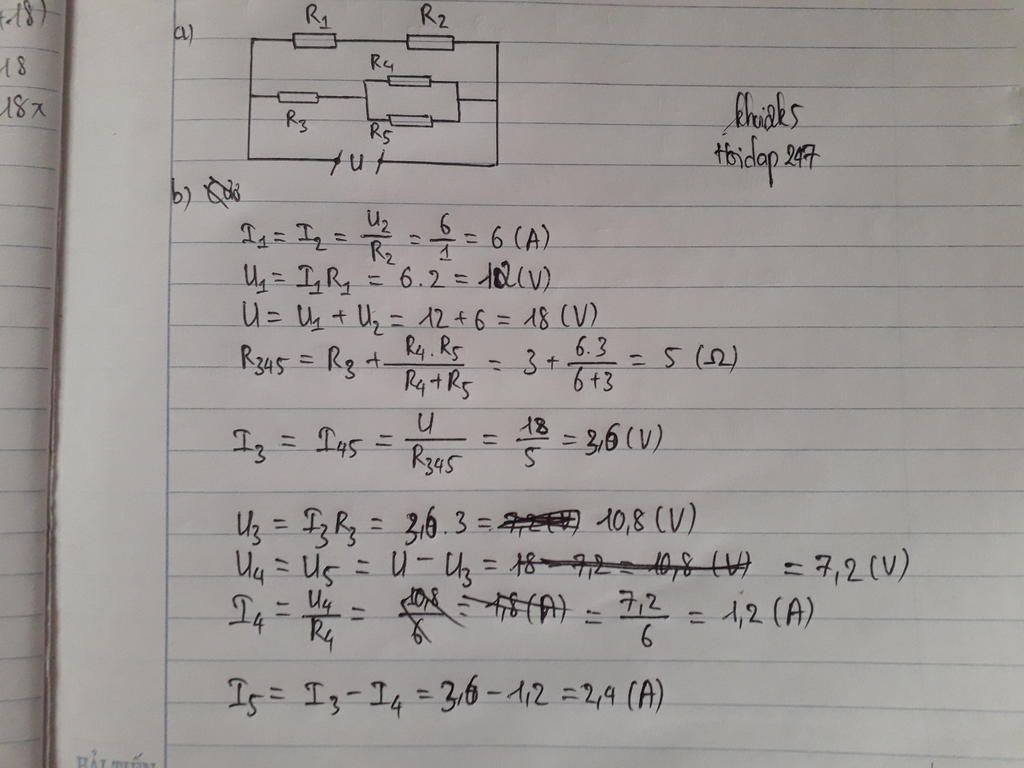 +18)
18
18x
a)
R1 R2
R4
R3
R5
U
khoidk5
hoidap 247
b)
I1 = I2 = U2/R2 = 6/1 = 6 (A)
U1 = I1R1 = 6.2 = 12 (V)
U = U1 + U2 = 12 + 6 = 18 (V)
R345 = R3 + R4.R5/R4+R5 = 3 + 6.3/6+3 = 5 (Ω)
I3 = I45 = U/R345 = 18/5 = 3,6 (V)
U3 = I3R3 = 3,6.3 = 7,2 (V) 10,8 (V)
U4 = U5 = U - U3 = 18 - 7,2 = 10,8 (V) = 7,2 (V)
I4 = U4/R4 = 10,8/6 = 1,8 (A) = 7,2/6 = 1,2 (A)
I5 = I3 - I4 = 3,6 - 1,2 = 2,4 (A)
HẢI TIẾN